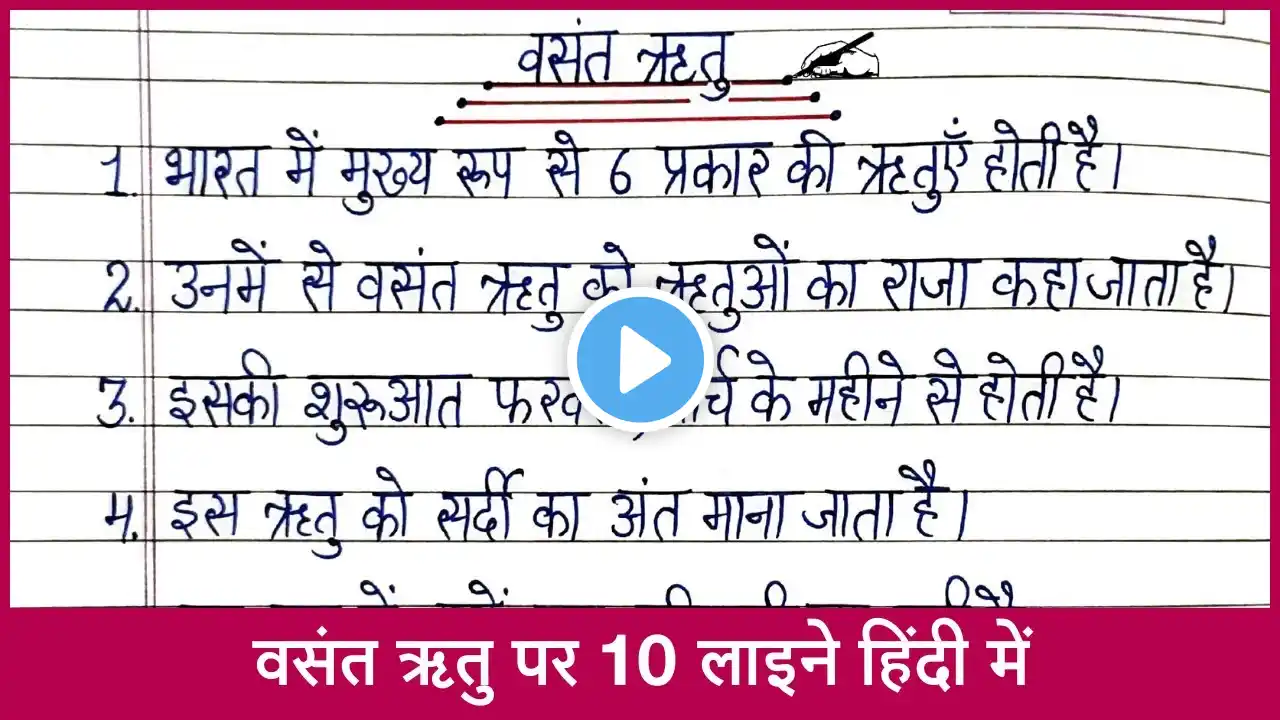 वसंत ऋतु
1. भारत में मुख्य रूप से 6 प्रकार की ऋतुएँ होती है।
2. उनमें से वसंत ऋतु को ऋतुओं का राजा कहा जाता है।
3. इसकी शुरूआत के महीने से होती है।
4. इस ऋतु को सर्दी का अंत माना जाता है।
वसंत ऋतु पर 10 लाइने हिंदी में